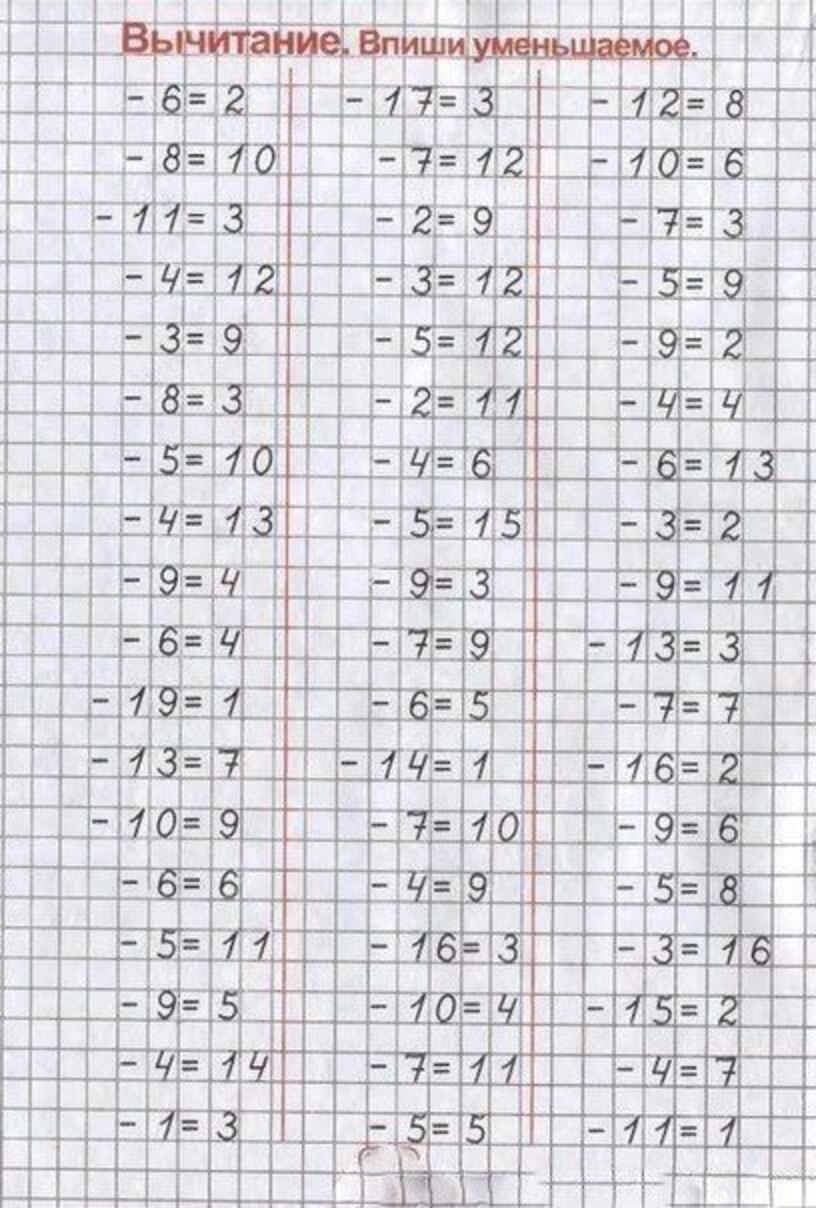 Вычитание. Впиши уменьшаемое.
- 6= 2 - 17= 3 - 12= 8
- 8= 10 - 7= 12 - 10= 6
- 11= 3 - 2= 9 - 7= 3
- 4= 12 - 3= 12 - 5= 9
- 3= 9 - 5= 12 - 9= 2
- 8= 3 - 2= 11 - 4= 4
- 5= 10 - 4= 6 - 6= 13
- 4= 13 - 5= 15 - 3= 2
- 9= 4 - 9= 3 - 9= 11
- 6= 4 - 7= 9 - 13= 3
- 19= 1 - 6= 5 - 7= 7
- 13= 7 - 14= 1 - 16= 2
- 10= 9 - 7= 10 - 9= 6
- 6= 6 - 4= 9 - 5= 8
- 5= 11 - 16= 3 - 3= 16
- 9= 5 - 10= 4 - 15= 2
- 4= 14 - 7= 11 - 4= 7
- 1= 3 - 5= 5 - 11= 1